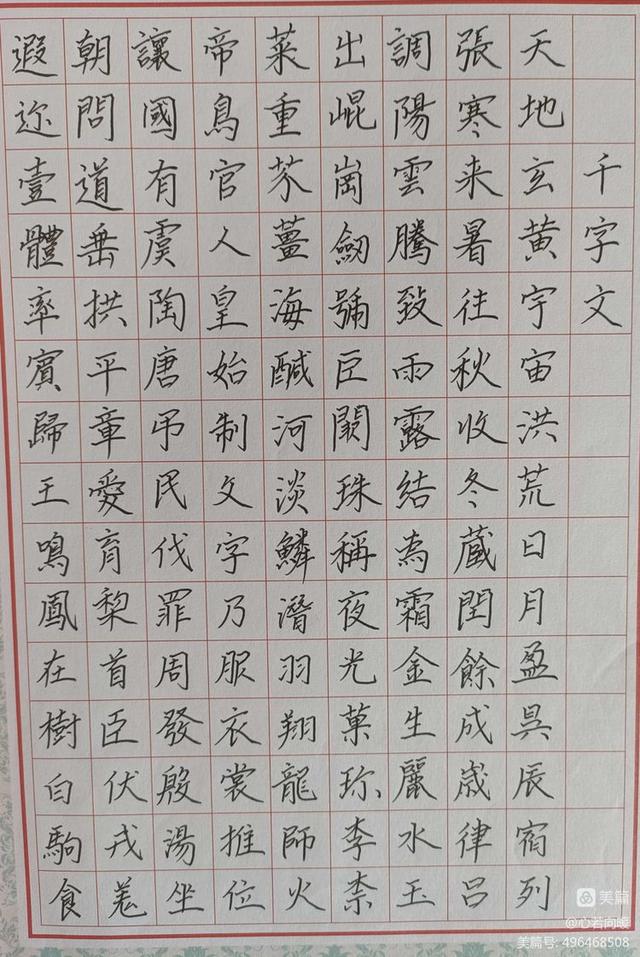 千字文
天地玄黄宇宙洪荒日月盈昃辰宿列
張寒来暑往秋收冬蔵閏餘成歲律吕
調陽雲騰致雨露結為霜金生麗水玉
出崐崗劒號巨闕珠稱夜光菓珎李柰
菜重芥薑海醎河淡鱗潛羽翔龍師火
帝鳥官人皇始制文字乃服衣裳推位
讓國有虞陶唐弔民伐罪周發殷湯坐
朝問道垂拱平章愛育黎首臣伏戎羌
遐迩壹體率賓歸王鳴鳳在樹白駒食
美篇
@心若向暖
美篇号: 496468508